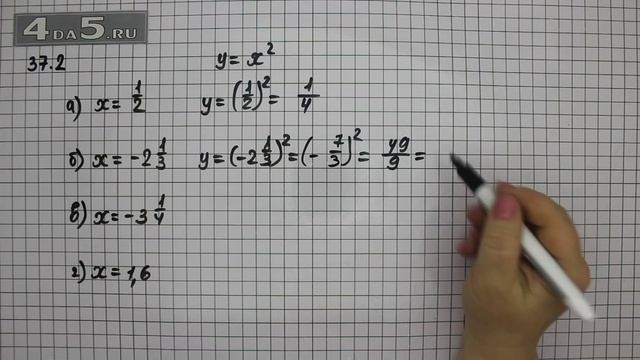 4DA5.RU
37.2 y = x²
а) x = 1/2 y = (1/2)² = 1/4
б) x = -2 1/3 y = (-2 1/3)² = (- 7/3)² = 49/9 =
в) x = -3 1/4
г) x = 1,6